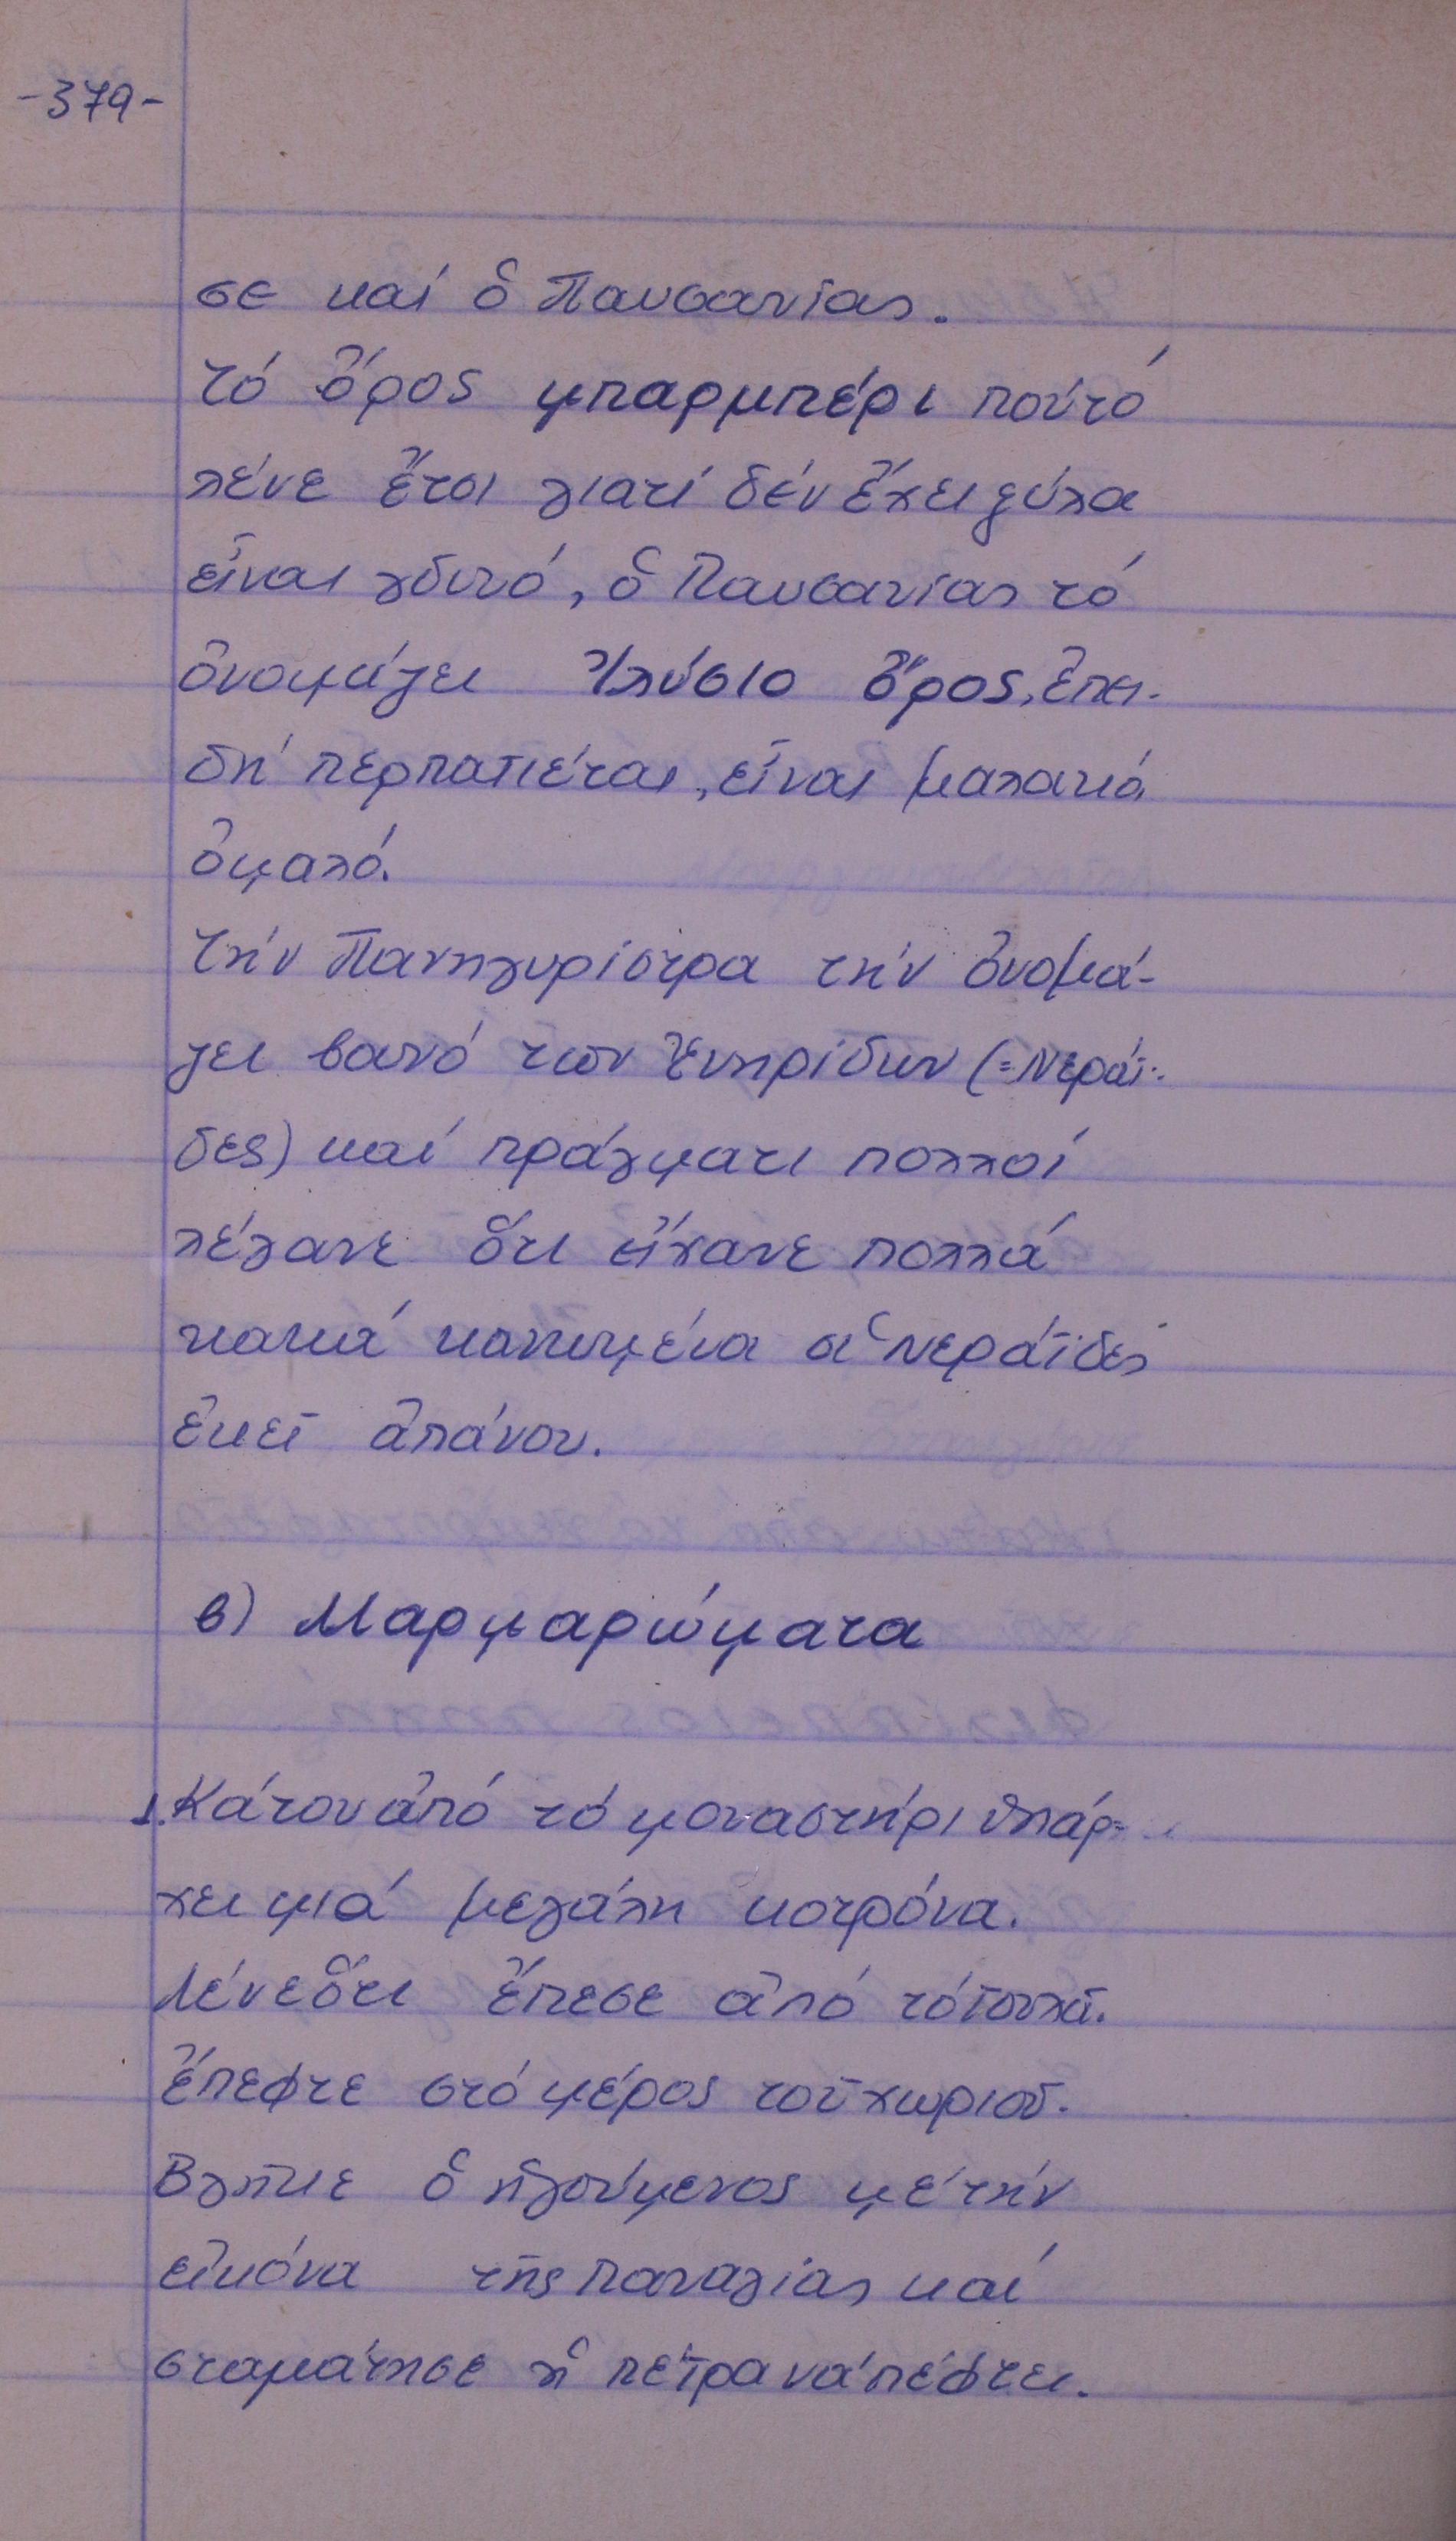 -379-
σε καί ὁ Παυσανίας.
τό ὄρος μπαρμπέρι πού τό
λένε ἔτσι γιατί δέν ἔχει ξύλα
εἶναι γδυτό, ὁ Παυσανίας τό
ὀνομάζει Ἠλύσιο ὄρος, ἐπει-
δή περπατιέται, εἶναι μαλακό,
ὁμαλό.
Τήν Πανηγυρίστρα τήν ὀνομά-
ζει βουνό των (=Νεράι-
δες) καί πράγματι πολλοί
λέγανε ὅτι εἴχανε πολλά
κακά καμωμένα οἱ νεράϊδες
ἐκεῖ ἀπάνου.
β) Μαρμαρώματα
1. Κάτου ἀπό τό μοναστήρι ὑπάρ-
χει μιά μεγάλη κοτρόνα.
Λένε ὅτι ἔπεσε ἀπό
ἔπεφτε στό μέρος τοῦ χωριοῦ.
Βγῆκε ὁ ἡγούμενος μέ τήν
εἰκόνα τῆς Παναγίας καί
σταμάτησε ἡ πέτρα νά πέφτει.